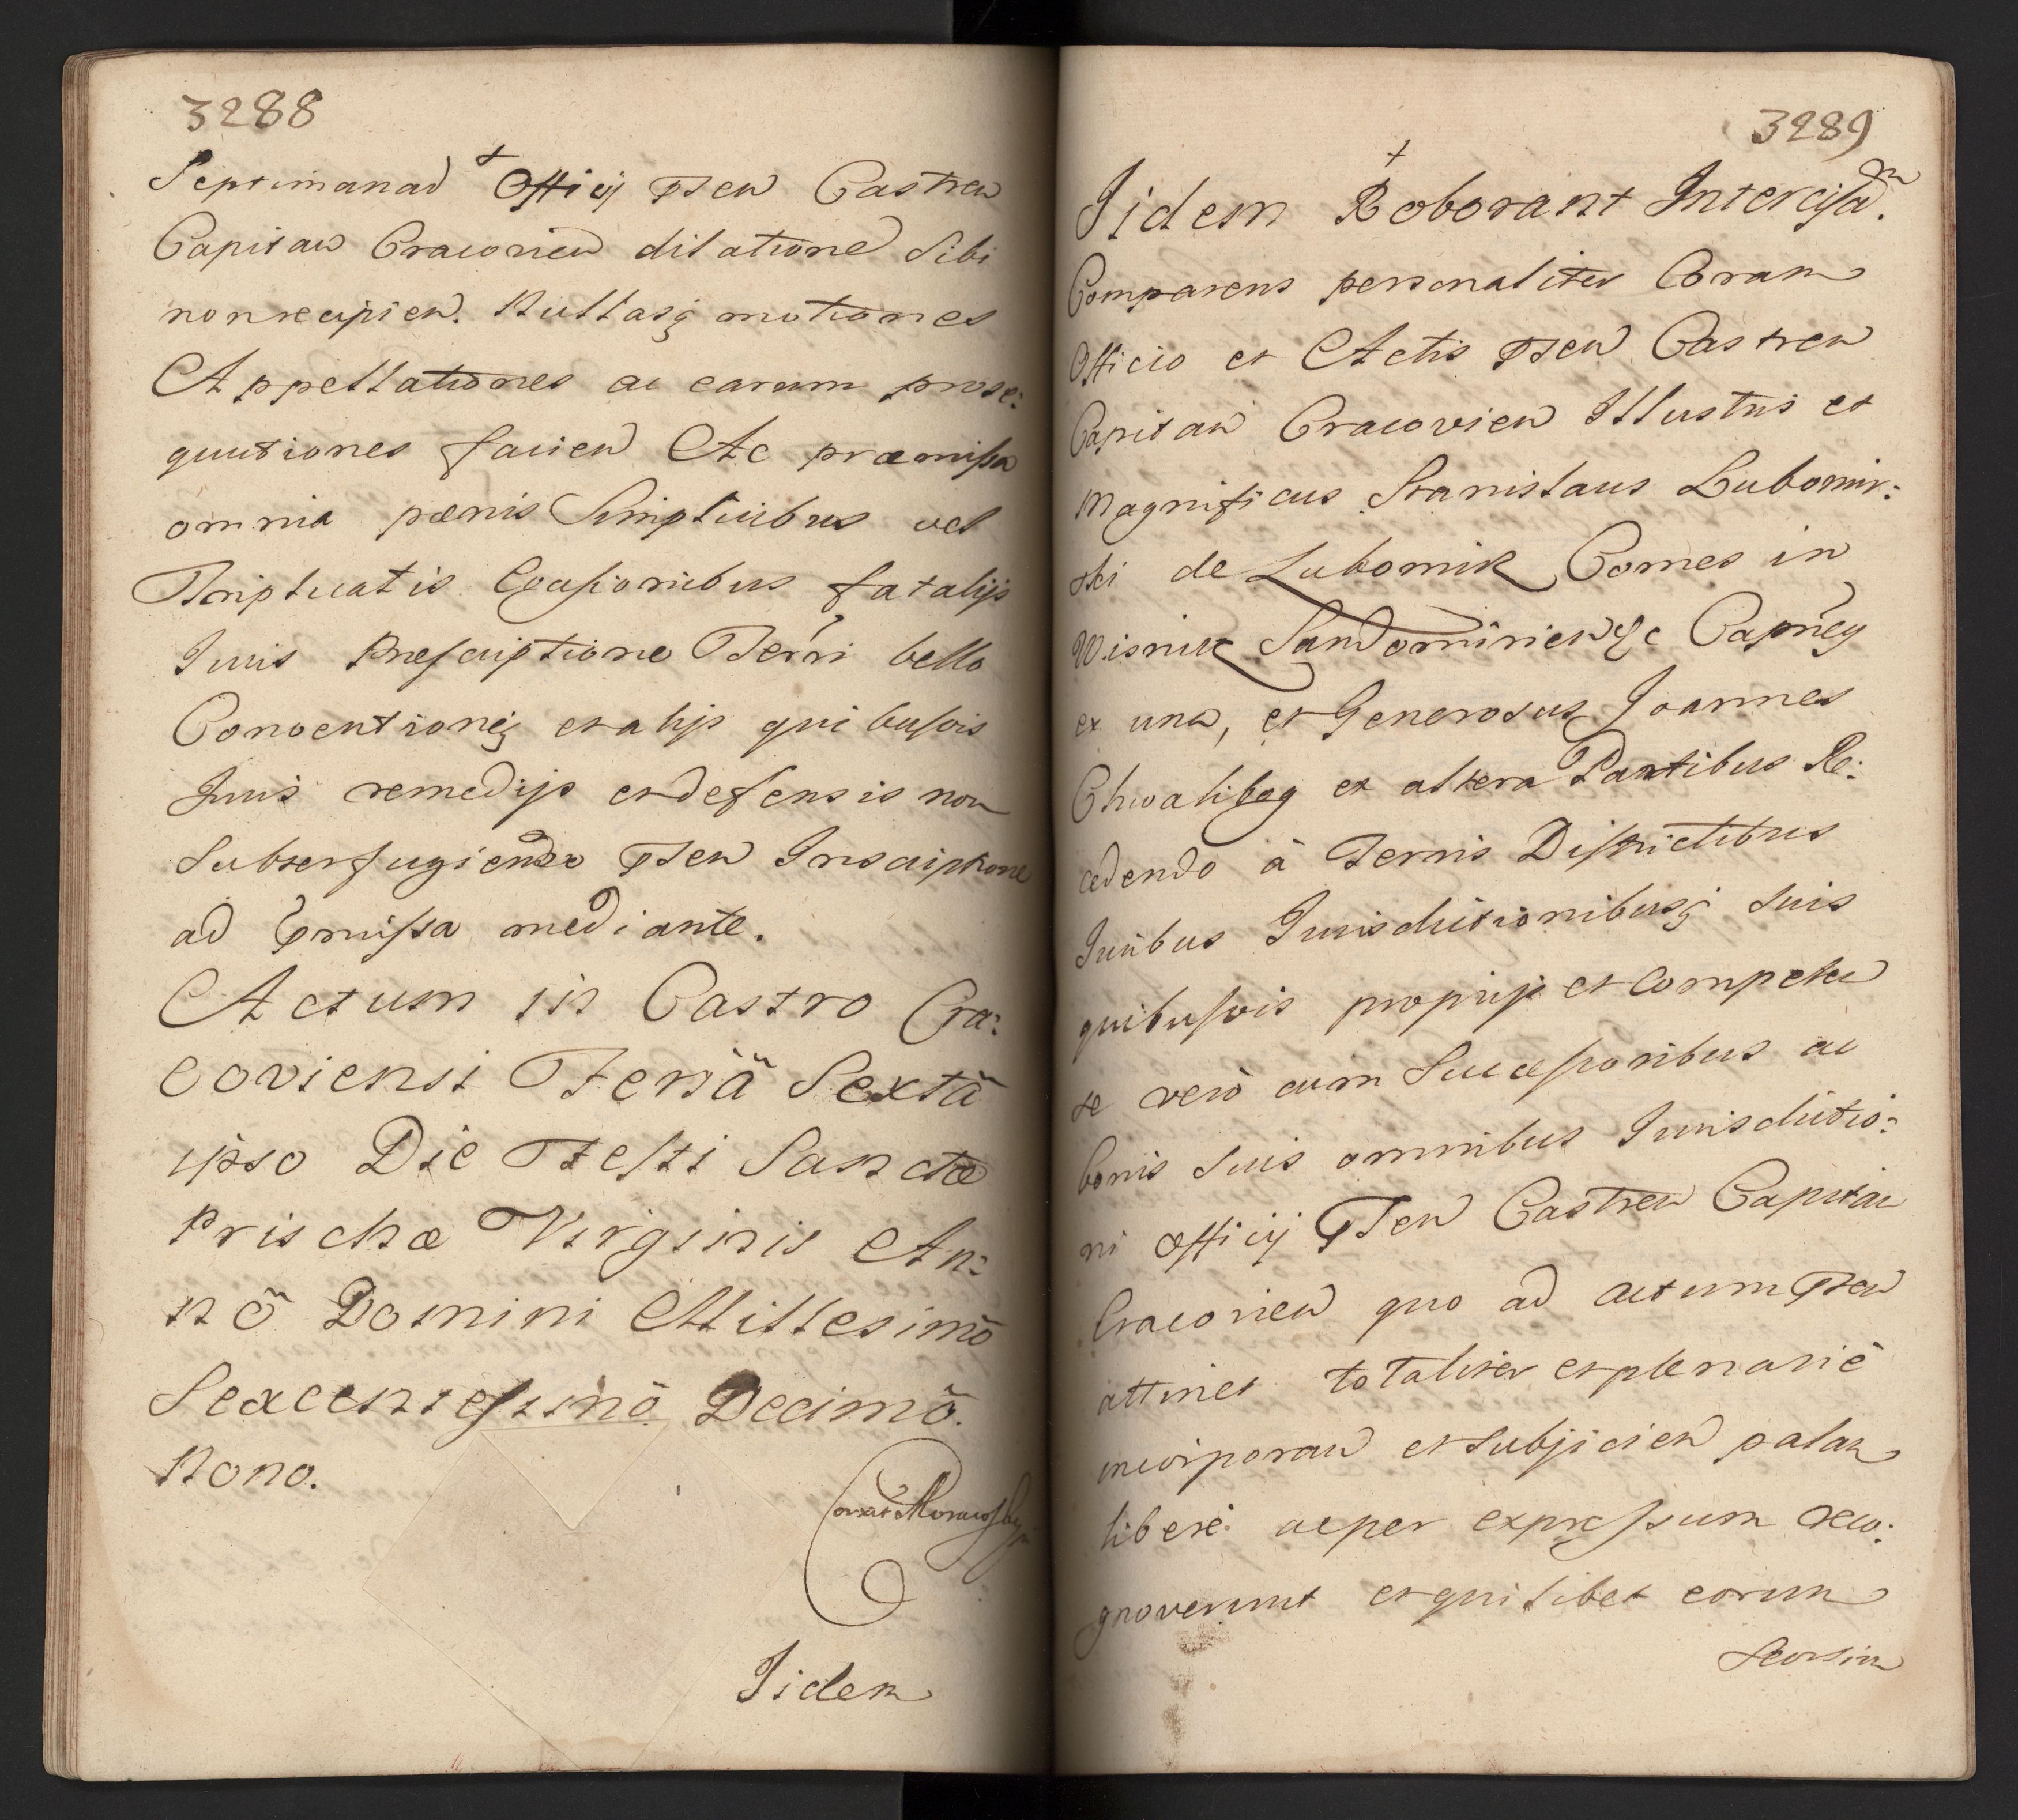 3288
Septimanad + Officij Psen Castren
Capitan Cracovien dilatione Sibi
nonrecipien. Nullasq motiones
Appellationes ac earum prose:
quutiones facien Ac præmissa
omnia pænis Simplicibus vel
Triplicatis Evasionibus fatalijs
Juris Præscriptione Terri bello
Conventioneq et alijs quibusvis
Juris remedijs et defensis non
Subterfugiendo Psen Inscriptione
ad Pmissa mediante.
Actum in Castro Cra:
coviensi Feriâ Sextâ
ipso Die Festi Sanctæ
Priscæ Virginis An:
nô Domini Millesimô
Sexcentesimô Decimô.
Nono.
Iidem
3289
+
Iidem Roborant Intercisam.
Comparens personaliter Coram
Officio et Actis Psen Castren
Capitan Cracovien Illustris et
Magnificus Stanislaus Lubomir:
ski de Lubomir Comes in
Wisnicz Sandomirien &c Capneg
ex una, et Generosus Joannes
Chwalibog ex altera Partibus Re:
cedendo à Terris Districtibus
Juribus Jurisdictionibusq suis
quibusvis proprijs et Competen
se verò cum Successoribus ac
bonis suis omnibus Jurisdictio:
ni Officij Psen Castren Capitan
Cracovien quo ad actum Psen
attinet totaliter et plenariè
incorporan et Subjicien palam
liberè acper expressum reco:
gnoverunt et quilibet eorum
Seorsim